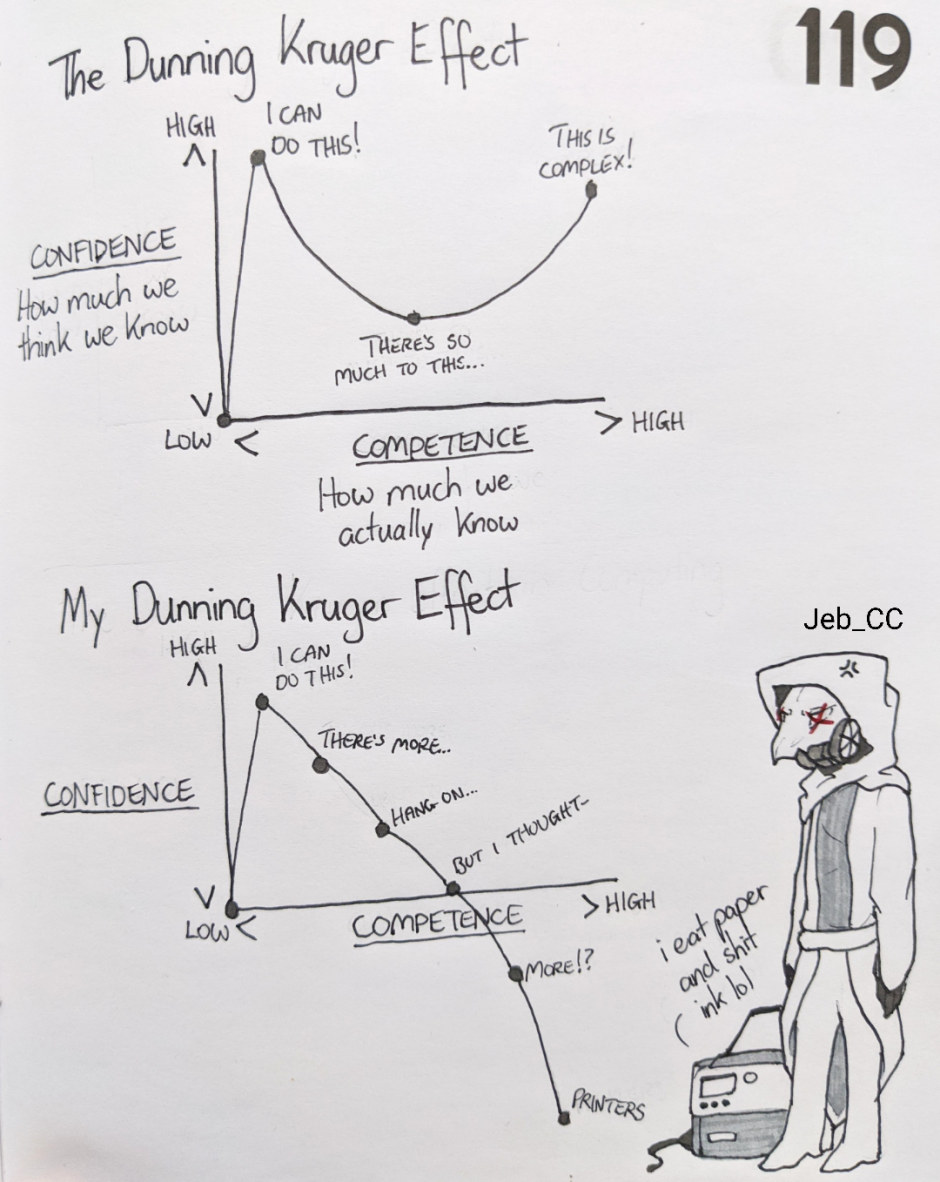 The Dunning Kruger Effect
119
HIGH
I CAN
DO THIS!
THIS IS
COMPLEX!
CONFIDENCE
How much we
think we know
THERE'S SO
MUCH TO THIS...
LOW
COMPETENCE
HIGH
How much we
actually know
My Dunning Kruger Effect
Jeb_CC
HIGH
I CAN
DO THIS!
THERE'S MORE...
CONFIDENCE
HANG ON...
BUT I THOUGHT-
LOW
COMPETENCE
HIGH
i eat paper
and shit
ink lol
MORE!?
PRINTERS